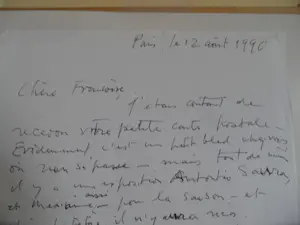 Paris le 12 août 1996
Chère Françoise,
J'étais content de
recevoir votre petite carte postale –
Evidemment c'est un petit bled chez vous
où rien se passe – mais tout de même
il y a une exposition Antonio Saura,
et pour la saison – et
il n'y aura